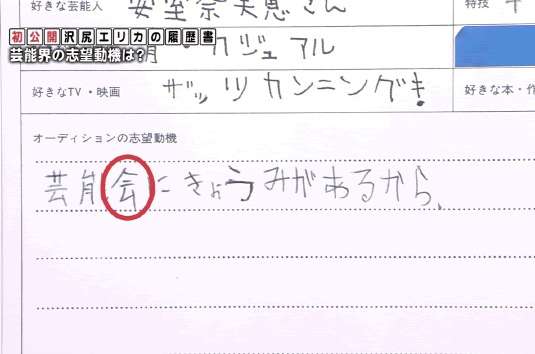 好きな芸能人 安室奈美恵さん 特技
初公開沢尻エリカの履歴書
芸能界の志望動機は?
・カジュアル
好きなTV・映画 ザッツカンニングき! 好きな本・作
オーディションの志望動機
芸能会にきょうみがあるから、